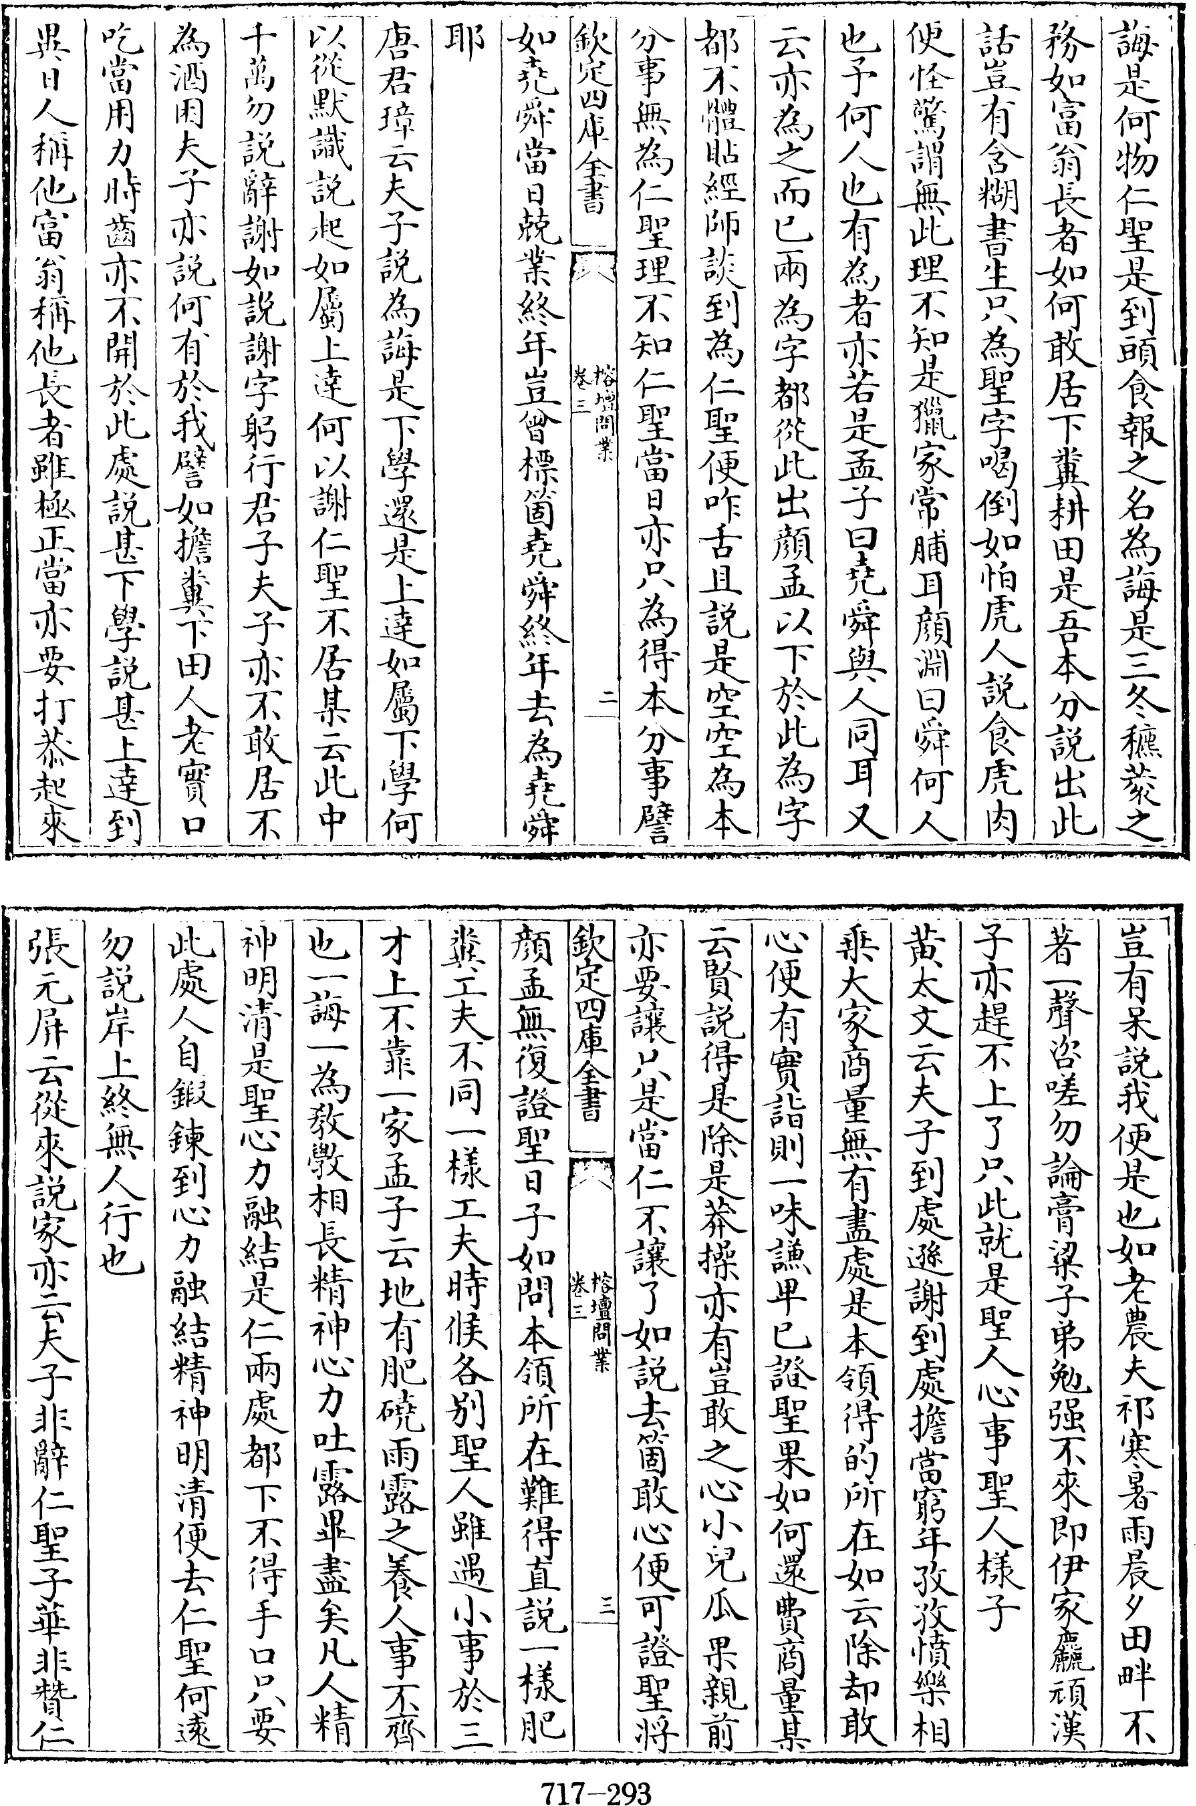 誨是何物仁聖是到頭食報之名為誨是三冬穮蔉之
務如富翁長者如何敢居下糞耕田是吾本分說出此
話豈有含糊書生只為聖字喝倒如怕虎人說食虎肉
便怪驚謂無此理不知是獵家常脯耳顔淵曰舜何人
也予何人也有為者亦若是孟子曰堯舜與人同耳又
云亦為之而已兩為字都從此出顔孟以下於此為字
都不體貼經師談到為仁聖便咋舌且說是空空為本
分事無為仁聖理不知仁聖當日亦只為得本分事譬
欽定四庫全書
榕壇問業
卷三
二
如堯舜當日兢業終年豈曾標箇堯舜終年去為堯舜
耶
唐君璋云夫子說為誨是下學還是上達如屬下學何
以從默識說起如屬上達何以謝仁聖不居某云此中
千萬勿說辭謝如說謝字躬行君子夫子亦不敢居不
為酒困夫子亦說何有於我譬如擔糞下田人老實口
吃當用力時齒亦不開於此處說甚下學說甚上達到
異日人稱他富翁稱他長者雖極正當亦要打恭起來
豈有呆說我便是也如老農夫祁寒暑雨晨夕田畔不
著一聲咨嗟勿論膏粱子弟勉强不來即伊家麤頑漢
子亦趕不上了只此就是聖人心事聖人樣子
黄太文云夫子到處遜謝到處擔當窮年孜孜憤樂相
乗大家商量無有盡處是本領得的所在如云除却敢
心便有實詣則一味謙卑已證聖果如何還費商量某
云賢說得是除是莽操亦有豈敢之心小兒瓜果親前
亦要讓只是當仁不讓了如說去箇敢心便可證聖將
欽定四庫全書
榕壇問業
卷三
三
顔孟無復證聖日子如問本領所在難得直說一樣肥
糞工夫不同一樣工夫時候各别聖人雖遇小事於三
才上不靠一家孟子云地有肥磽雨露之養人事不齊
也一誨一為敎斆相長精神心力吐露畢盡矣凡人精
神明清是聖心力融結是仁兩處都下不得手口只要
此處人自鍜鍊到心力融結精神明清便去仁聖何逺
勿說岸上終無人行也
張元屏云從來說家亦云夫子非辭仁聖子華非贊仁
717-293